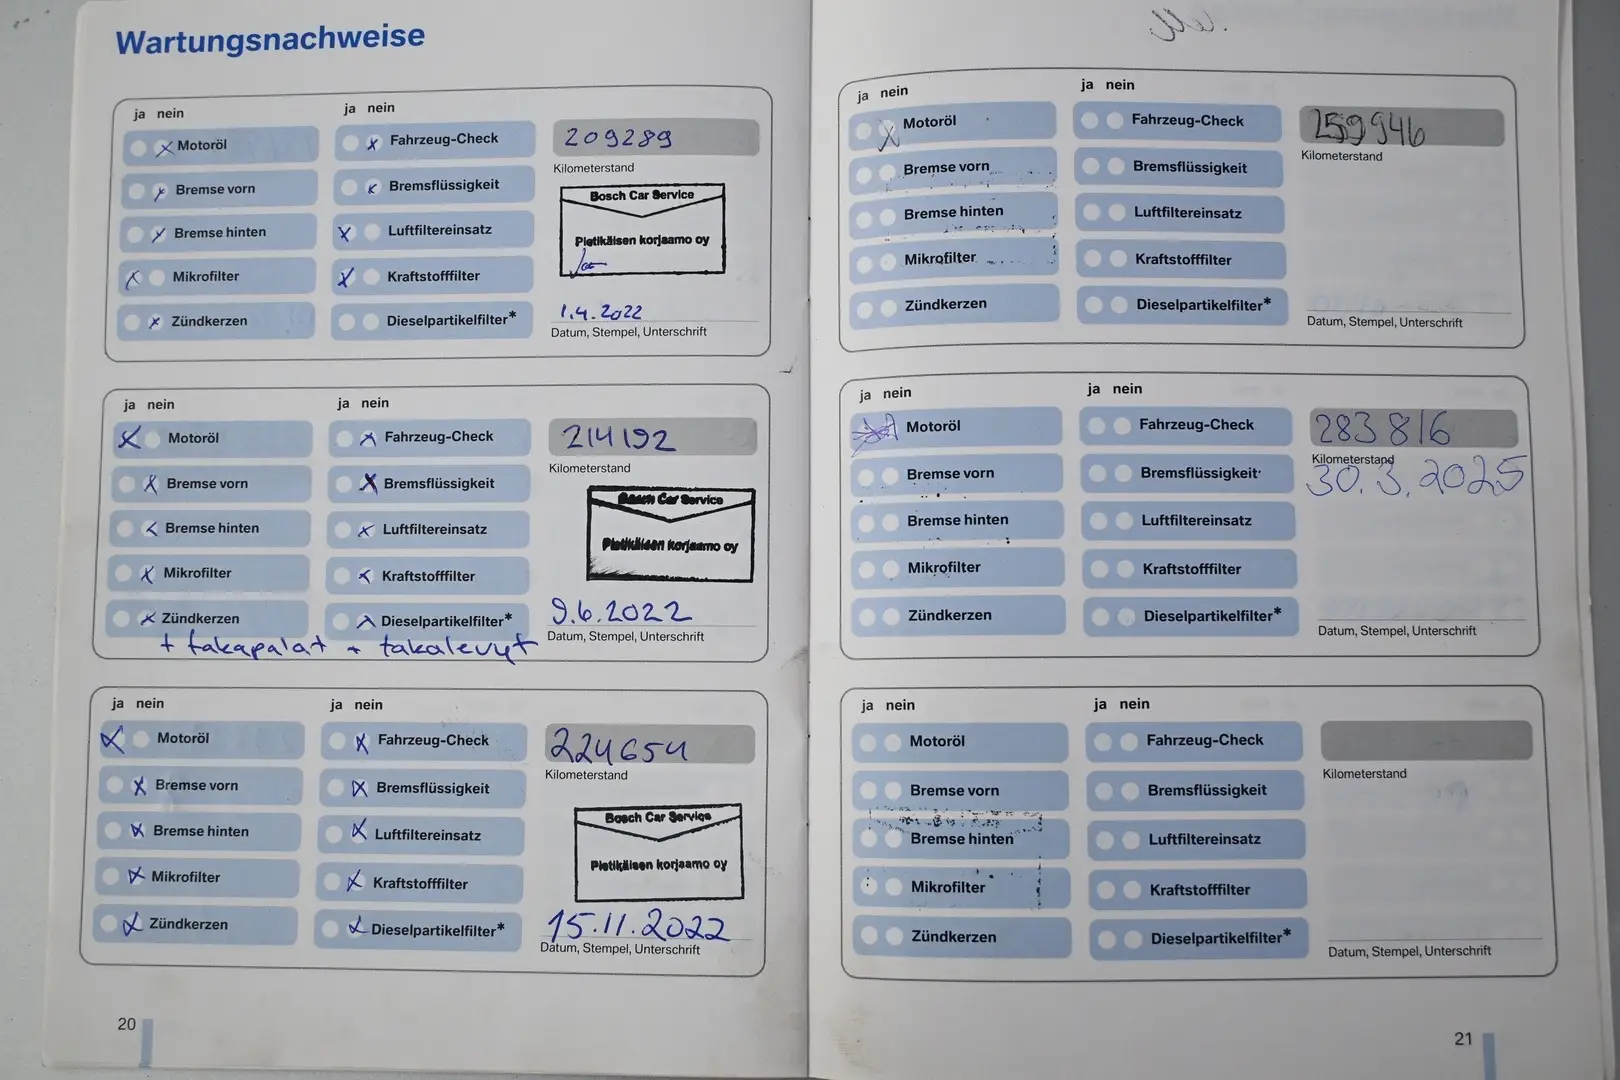 Wartungsnachweise
ja nein
ja nein
Motoröl
Fahrzeug-Check
209289
Bremse vorn
Bremsflüssigkeit
Kilometerstand
Bremse hinten
Luftfiltereinsatz
Bosch Car Service
Pietikäisen korjaamo oy
Mikrofilter
Kraftstofffilter
Zündkerzen
Dieselpartikelfilter*
1.4.2022
Datum, Stempel, Unterschrift
ja nein
ja nein
Motoröl
Fahrzeug-Check
214192
Bremse vorn
Bremsflüssigkeit
Kilometerstand
Bremse hinten
Luftfiltereinsatz
Bosch Car Service
Pietikäisen korjaamo oy
Mikrofilter
Kraftstofffilter
Zündkerzen
Dieselpartikelfilter*
9.6.2022
Datum, Stempel, Unterschrift
+ takapalat + takalevyt
ja nein
ja nein
Motoröl
Fahrzeug-Check
224654
Bremse vorn
Bremsflüssigkeit
Kilometerstand
Bremse hinten
Luftfiltereinsatz
Bosch Car Service
Pietikäisen korjaamo oy
Mikrofilter
Kraftstofffilter
Zündkerzen
Dieselpartikelfilter*
15.11.2022
Datum, Stempel, Unterschrift
20
ja nein
ja nein
Motoröl
Fahrzeug-Check
259946
Bremse vorn
Bremsflüssigkeit
Kilometerstand
Bremse hinten
Luftfiltereinsatz
Mikrofilter
Kraftstofffilter
Zündkerzen
Dieselpartikelfilter*
Datum, Stempel, Unterschrift
ja nein
ja nein
Motoröl
Fahrzeug-Check
283816
Bremse vorn
Bremsflüssigkeit
Kilometerstand
30.3.2025
Bremse hinten
Luftfiltereinsatz
Mikrofilter
Kraftstofffilter
Zündkerzen
Dieselpartikelfilter*
Datum, Stempel, Unterschrift
ja nein
ja nein
Motoröl
Fahrzeug-Check
Bremse vorn
Bremsflüssigkeit
Kilometerstand
Bremse hinten
Luftfiltereinsatz
Mikrofilter
Kraftstofffilter
Zündkerzen
Dieselpartikelfilter*
Datum, Stempel, Unterschrift
21